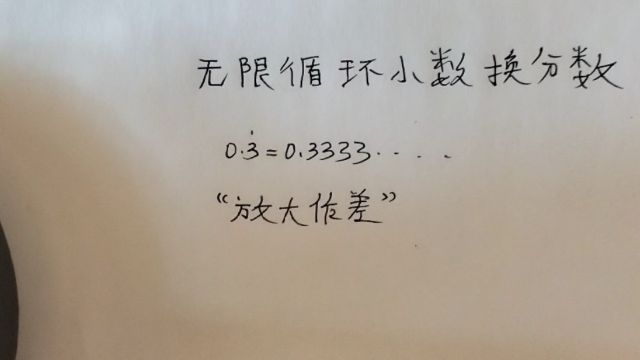 无限循环小数换分数
0.3̇=0.3333.....
“放大作差”